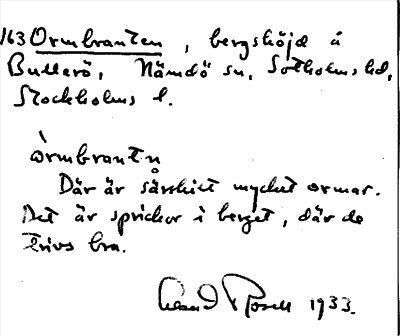 163 Ormbranten, bergshöjd å
Bullerö, Nämdö sn, Sotholms hd,
Stockholms l.
òrmbrantn̥
Där är särskilt mycket ormar.
Det är sprickor i berget, där de
trivs bra.
1933.